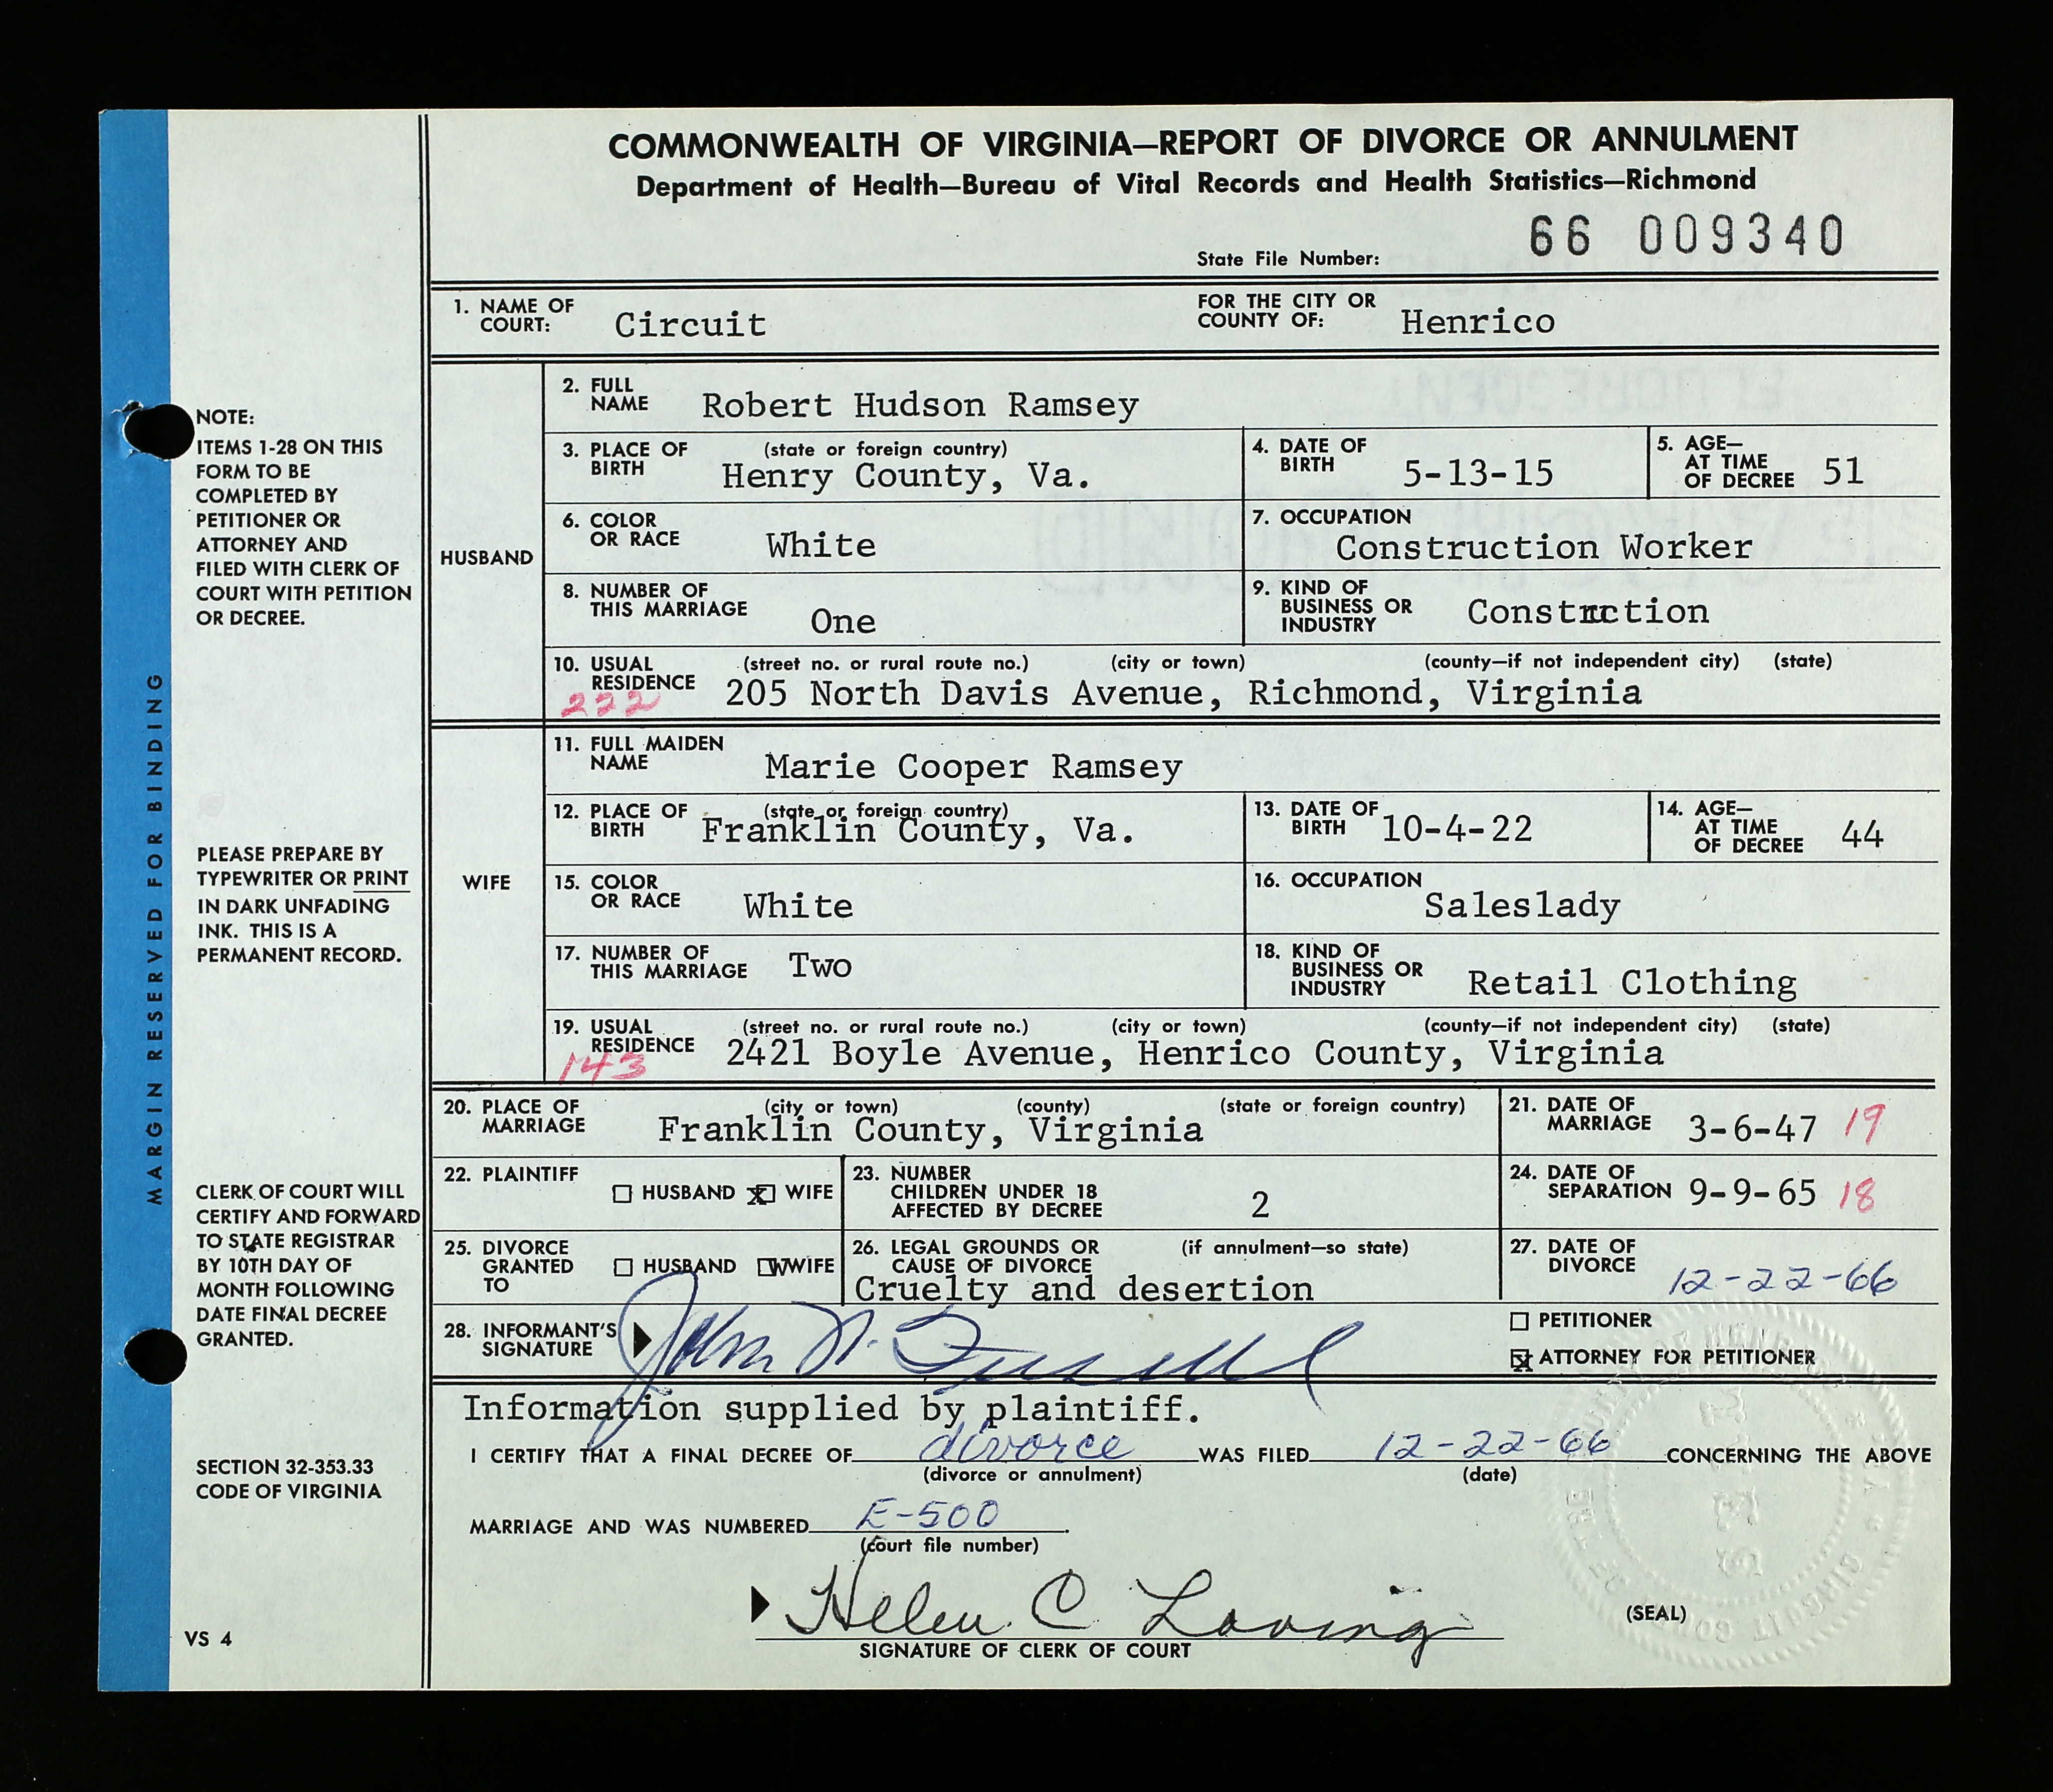 COMMONWEALTH OF VIRGINIA—REPORT OF DIVORCE OR ANNULMENT
Department of Health—Bureau of Vital Records and Health Statistics—Richmond
State File Number: 66 009340
1. NAME OF COURT: Circuit FOR THE CITY OR COUNTY OF: Henrico
HUSBAND
2. FULL NAME Robert Hudson Ramsey
3. PLACE OF BIRTH (state or foreign country) Henry County, Va. 4. DATE OF BIRTH 5-13-15 5. AGE—AT TIME OF DECREE 51
6. COLOR OR RACE White 7. OCCUPATION Construction Worker
8. NUMBER OF THIS MARRIAGE One 9. KIND OF BUSINESS OR INDUSTRY Construction
10. USUAL RESIDENCE (street no. or rural route no.) (city or town) (county—if not independent city) (state)
222 205 North Davis Avenue, Richmond, Virginia
WIFE
11. FULL MAIDEN NAME Marie Cooper Ramsey
12. PLACE OF BIRTH (state or foreign country) Franklin County, Va. 13. DATE OF BIRTH 10-4-22 14. AGE—AT TIME OF DECREE 44
15. COLOR OR RACE White 16. OCCUPATION Saleslady
17. NUMBER OF THIS MARRIAGE Two 18. KIND OF BUSINESS OR INDUSTRY Retail Clothing
19. USUAL RESIDENCE (street no. or rural route no.) (city or town) (county—if not independent city) (state)
143 2421 Boyle Avenue, Henrico County, Virginia
20. PLACE OF MARRIAGE (city or town) (county) (state or foreign country) Franklin County, Virginia 21. DATE OF MARRIAGE 3-6-47 19
22. PLAINTIFF HUSBAND X WIFE 23. NUMBER CHILDREN UNDER 18 AFFECTED BY DECREE 2 24. DATE OF SEPARATION 9-9-65 18
25. DIVORCE GRANTED TO HUSBAND W WIFE 26. LEGAL GROUNDS OR CAUSE OF DIVORCE (if annulment—so state) Cruelty and desertion 27. DATE OF DIVORCE 12-22-66
28. INFORMANT'S SIGNATURE John PETITIONER
X ATTORNEY FOR PETITIONER
Information supplied by plaintiff.
I CERTIFY THAT A FINAL DECREE OF divorce WAS FILED 12-22-66 CONCERNING THE ABOVE
(divorce or annulment) (date)
MARRIAGE AND WAS NUMBERED E-500.
(court file number)
Helen C. Loving
SIGNATURE OF CLERK OF COURT
(SEAL)
MARGIN RESERVED FOR BINDING
NOTE:
ITEMS 1-28 ON THIS
FORM TO BE
COMPLETED BY
PETITIONER OR
ATTORNEY AND
FILED WITH CLERK OF
COURT WITH PETITION
OR DECREE.
PLEASE PREPARE BY
TYPEWRITER OR PRINT
IN DARK UNFADING
INK. THIS IS A
PERMANENT RECORD.
CLERK OF COURT WILL
CERTIFY AND FORWARD
TO STATE REGISTRAR
BY 10TH DAY OF
MONTH FOLLOWING
DATE FINAL DECREE
GRANTED.
SECTION 32-353.33
CODE OF VIRGINIA
VS 4